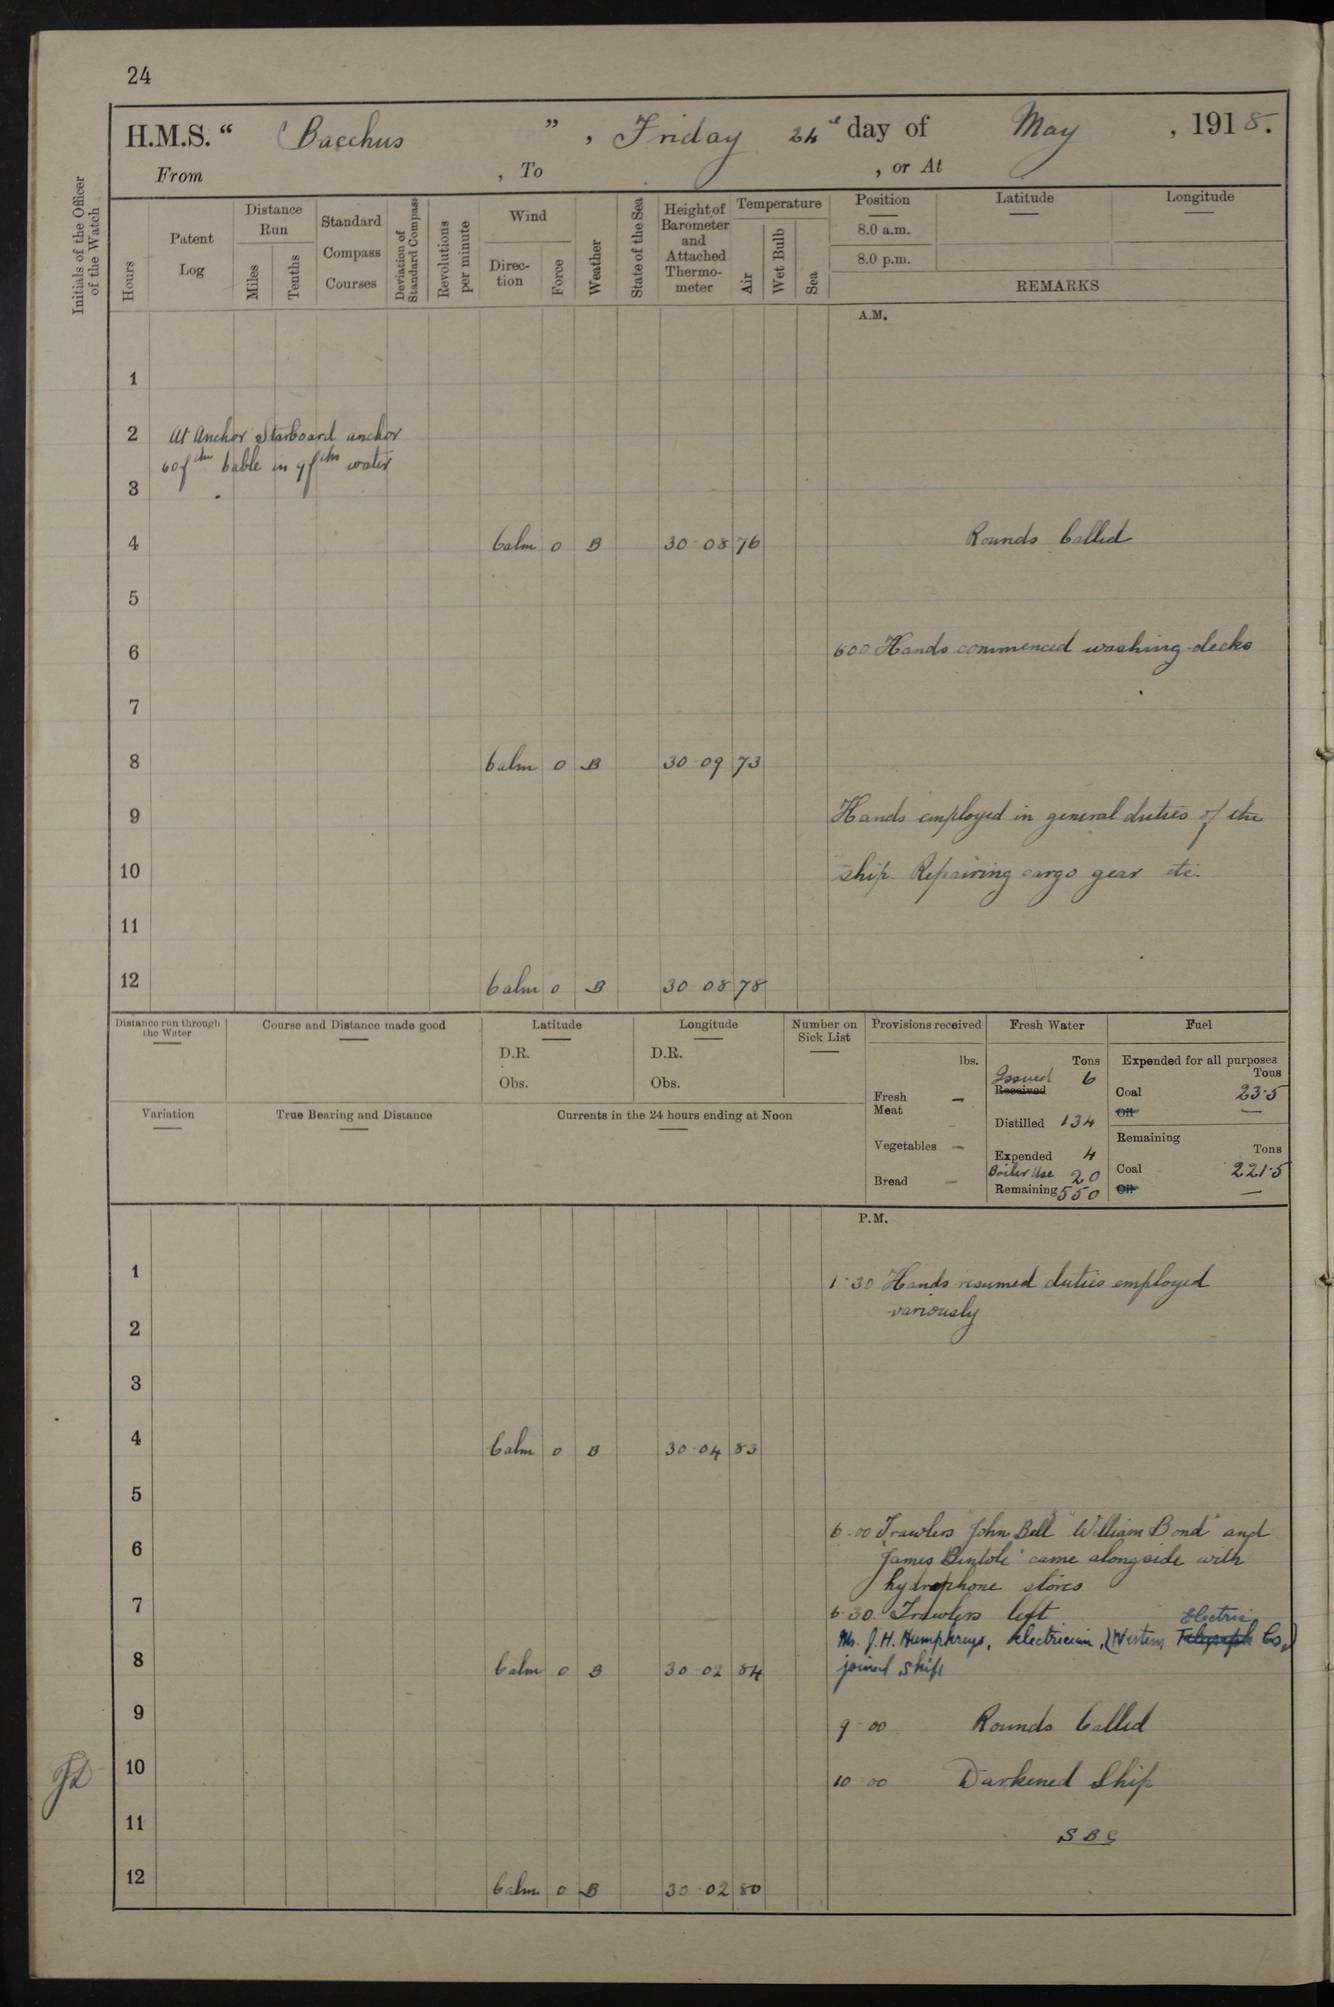 24
H.M.S. “ Bacchus ” , Friday 24th day of May , 1918.
From , To , or At
Initials of the Officer of the Watch
Hours
Patent Log
Distance Run
Miles
Tenths
Standard Compass Courses
Deviation of Standard Compass
Revolutions per minute
Wind
Direction
Force
Weather
State of the Sea
Height of Barometer and Attached Thermometer
Temperature
Air
Wet Bulb
Sea
Position
8.0 a.m.
8.0 p.m.
Latitude
Longitude
REMARKS
A.M.
1
2 At Anchor Starboard anchor
60 fthm Cable in 9 fthms water
3
4 Calm 0 B 30·08 76 Rounds Called
5
6 600 Hands commenced washing decks
7
8 Calm 0 B 30·09 73
9 Hands employed in general duties of the
10 ship. Repairing cargo gear etc.
11
12 Calm 0 B 30·08 78
Distance run through the Water
Course and Distance made good
Latitude
D.R.
Obs.
Longitude
D.R.
Obs.
Number on Sick List
Provisions received
lbs.
Fresh Meat —
Vegetables —
Bread —
Fresh Water
Tons
Issued 6
Received
Distilled 134
Expended 4
Boiler Use 20
Remaining 550
Fuel
Expended for all purposes
Tons
Coal 23·5
Oil —
Remaining
Tons
Coal 221·5
Oil —
Variation
True Bearing and Distance
Currents in the 24 hours ending at Noon
P.M.
1 1·30 Hands resumed duties employed
variously
2
3
4 Calm 0 B 30·04 83
5
6·00 Trawlers "John Bell" "William Bond" and
6 "James " came alongside with
hydrophone stores
7 6·30 Trawlers left
Electric
Mr. J. H. Humphreys, electrician, (Western Telegraph Co.)
8 Calm 0 B 30·02 84 joined ship
9 9·00 Rounds Called
10 10·00 Darkened Ship
11 S B G
12 Calm 0 B 30·02 80